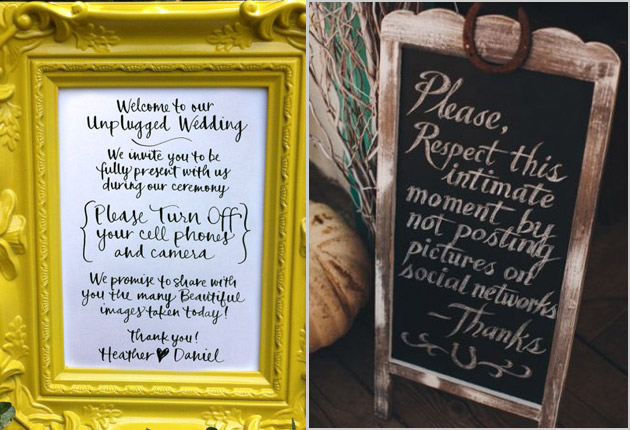 Welcome to our
Unplugged Wedding
We invite you to be
fully present with us
during our ceremony
{Please Turn Off
your cell phones
and camera}
We promise to share with
you the many Beautiful
images taken today!
Thank you!
Heather ♥ Daniel
Please,
Respect this
intimate
moment by
not posting
pictures on
social networks
-Thanks